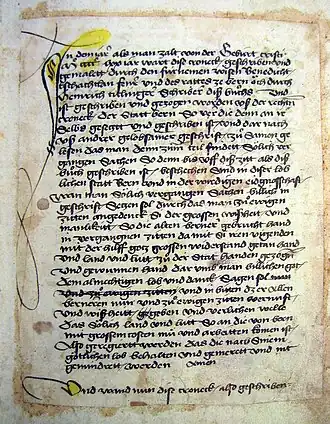 In dem iar als man zalt von der geburt cristi
wart dise cronick geschriben und
gemalett durch den fürnemen wisen Benedicht
tschachtlan fenr und des rattes ze bern och durch
Heinrich tillinger Schriber dis buchs Und
ist geschriben und gezogen worden usß der rechtn
cronick der Statt bern So wie die denn an ir
selbs gesetzt und geschriben ist und dar nach
usß andrer gelobsamer geschrift zu samen ge
lesen das man denn zum teil findett Sölich ver
gangen Sachen So dem bis uff diß zit als diß
buch geschriben ist beschechen Sind in diser lob
lichen statt Bern und in der wirdigen eidgnosschaft
Wan man Sölich vergangen Sachen billich in
geschrift Setzen sol durch das man zu ewigen
ziten angedenck si der grossen trostheit und
manlikeit So die alten berner gebrucht hand
in vergangnen ziten da mit si iren vigenden
mit der hilff gotz grossen widerstand getan hand
Und land und lütt zu der Statt handen gezogen
Und gewunnen hand dar umb man billichen got
dem almechtigen lob und danck Sagen sol nun
Und zu ewigen ziten und in bitten dz er allen
berneren nun und zu ewigen ziten vernunft
und wißheitt gegeben und verlichen welle
das Sölich land und lütt So an die von bern
mit grossem costen mü und arbeitten komen ist
Also geregierett werden das die nach sinem
götlichen lob behalten und gemerett und nit
gemindrett werden Amen
Und wand nun dise cronick also geschriben